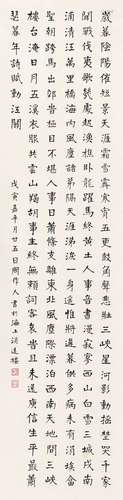 歲暮陰陽催短景天涯霜雪霽寒宵五更鼓角聲悲壯三峽星河影動搖野哭千家
聞戰伐夷歌幾處起漁樵臥龍躍馬終黃土人事音書漫寂寥西山白雪三城戍南
浦清江萬里橋海內風塵諸弟隔天涯涕淚一身遙惟將遲暮供多病未有涓埃答
聖朝跨馬出郊時極目不堪人事日蕭條支離東北風塵際漂泊西南天地間三峽
樓臺淹日月五溪衣服共雲山羯胡事主終無賴詞客哀時且未還庾信生平最蕭
瑟暮年詩賦動江關
戊寅嘉平月廿五日周作人書於海上消遙樓